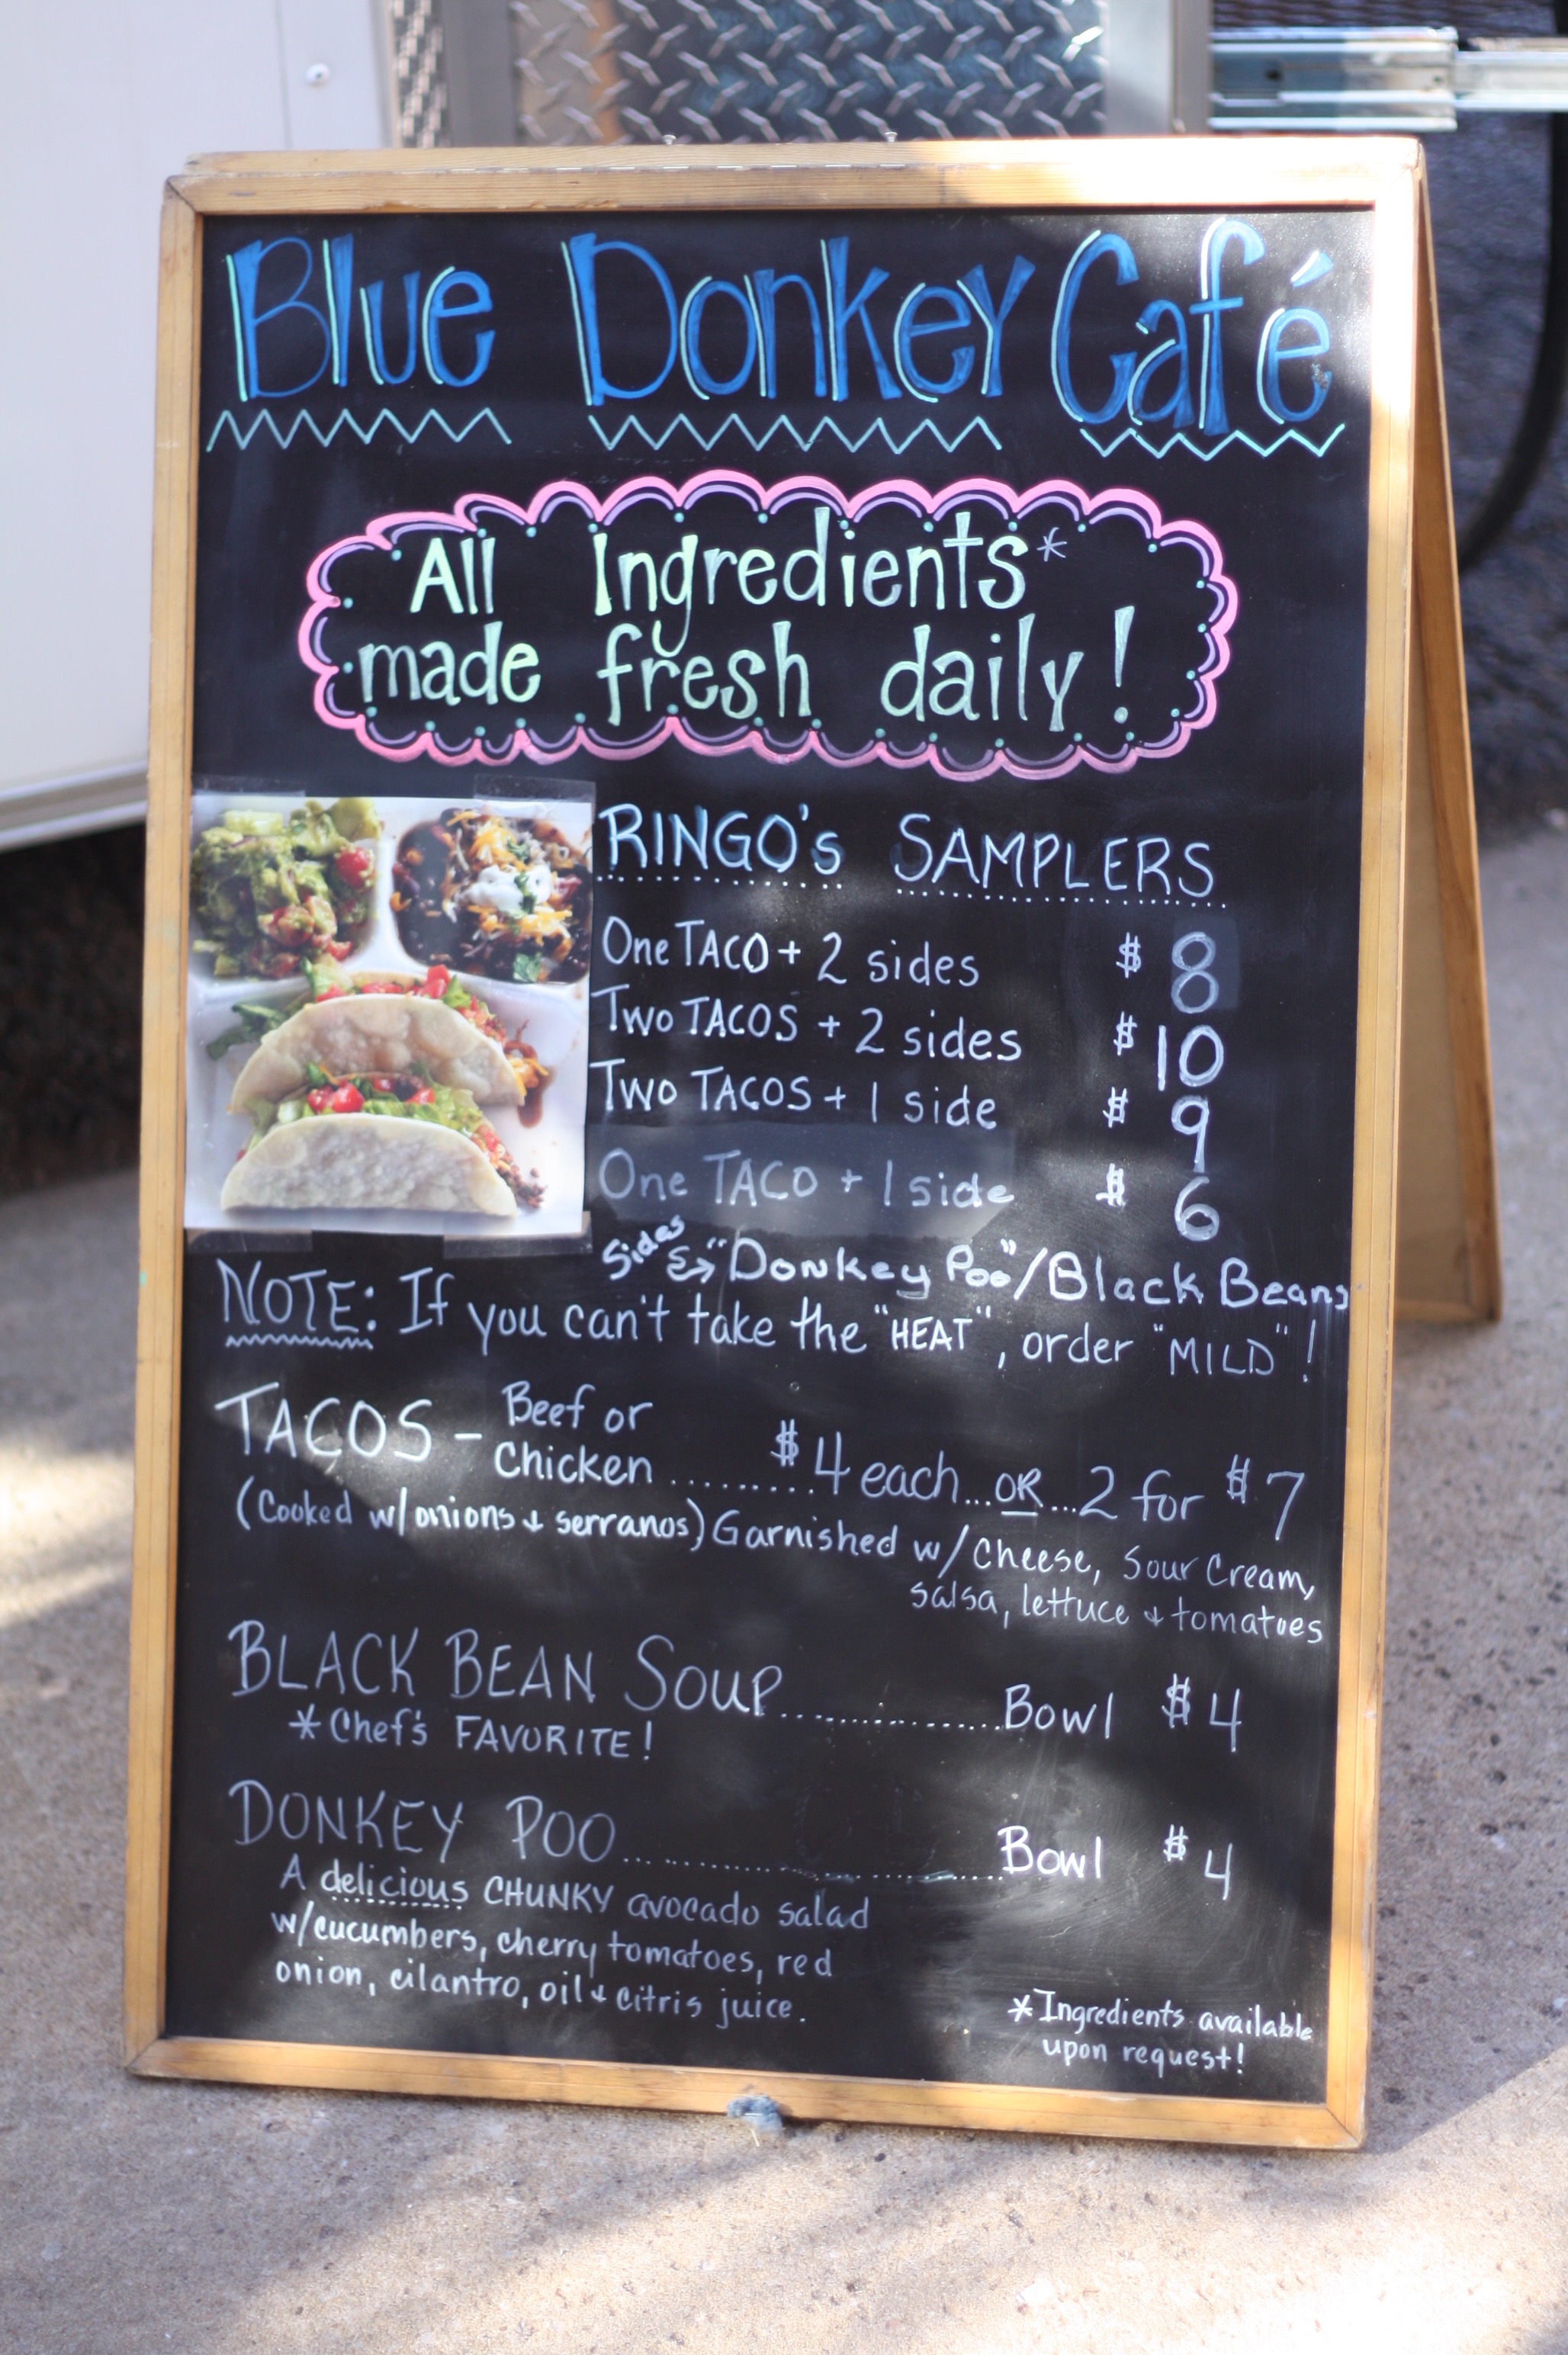 Blue Donkey Café
All Ingredients*
made fresh daily!
RINGO's SAMPLERS
One TACO + 2 sides $ 8
Two TACOS + 2 sides $ 10
Two TACOS + 1 side $ 9
One TACO + 1 side $ 6
Sides → "Donkey Poo"/Black Beans
NOTE: If you can't take the "HEAT", order "MILD"!
TACOS - Beef or Chicken ......... $4 each...OR...2 for $7
(Cooked w/onions + serranos) Garnished w/ Cheese, Sour Cream,
salsa, lettuce + tomatoes
BLACK BEAN SOUP................Bowl $4
* Chef's FAVORITE!
DONKEY POO......................Bowl $4
A delicious CHUNKY avocado salad
w/cucumbers, cherry tomatoes, red
onion, cilantro, oil + citris juice.
*Ingredients available
upon request!